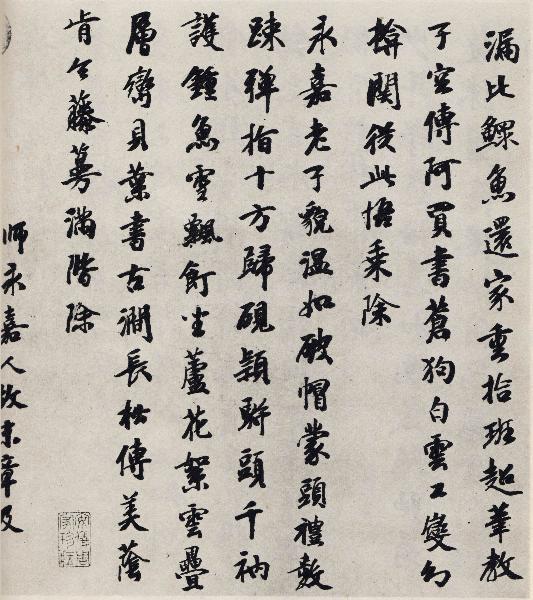 漏比鰥魚還家重拾班超筆教
子空傳阿買書蒼狗白雲工變幻
撐関從此悟乘除
永嘉老子貌溫如破帽蒙頭禮數
踈彈指十方歸硯穎駢頭千衲
護鍾魚雪飄飣坐蘆花絮雲疊
層巒貝葉書古澗長松傳美蔭
肯令藤蔓滿階除
師永嘉人故末章及
安儀周家珍藏